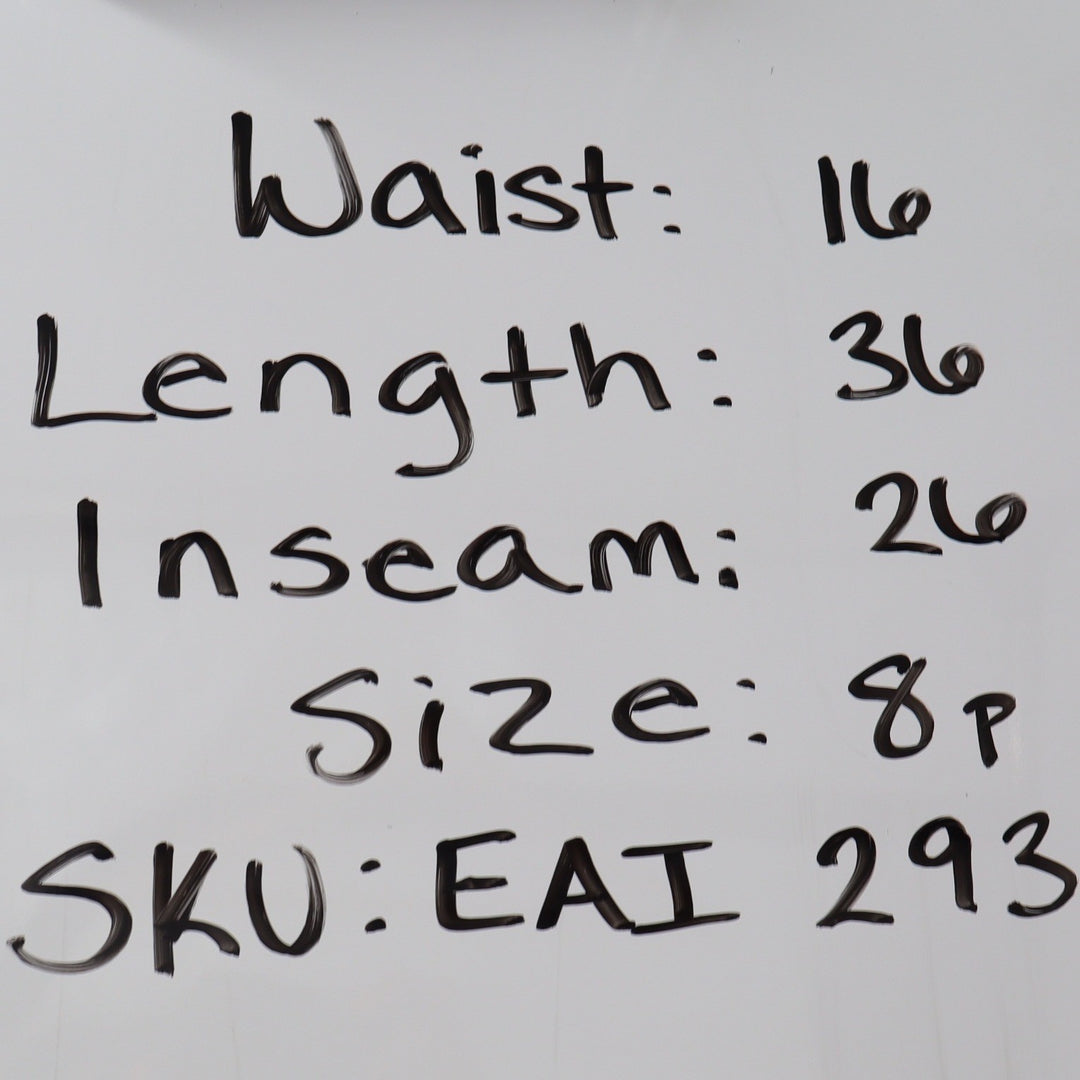 Waist: 16
Length: 36
Inseam: 26
Size: 8P
SKU: EAI 293